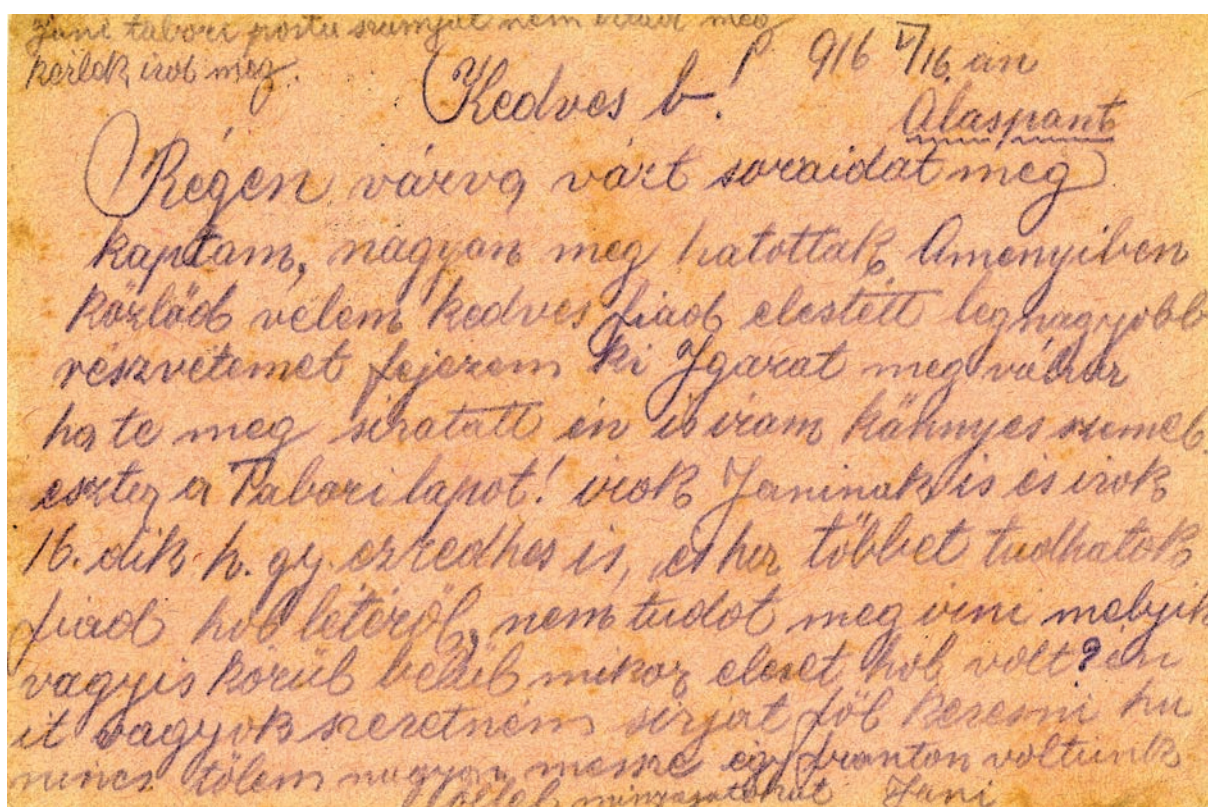 Jani tabori posta szamjat nem tudod meg
kérlek irod meg.
P. 916 V/16 án
Kedves b!
Alaspant
Régen várva várt soraidat meg
kaptam, nagyon meg hatottak Amenyiben
közlöd velem kedves fiad elestétt legnagyobb
részvétemet fejezem ki Igazat megvátva
ha te meg siratatt én is irom könnyes szemeb
eszteg a Tabori lapot! irok Janinak is és irok
16. dik h. gy. ezredhes is, és ha többet tudhatok
fiad hol létéröl, nem tudot meg irni melyik
vagyis körül belül mikor eleset hol volt? én
it vagyok szeretném sirjat föl keresni ha
nincs tölem nagyon messze egy fronton voltunk
Jani